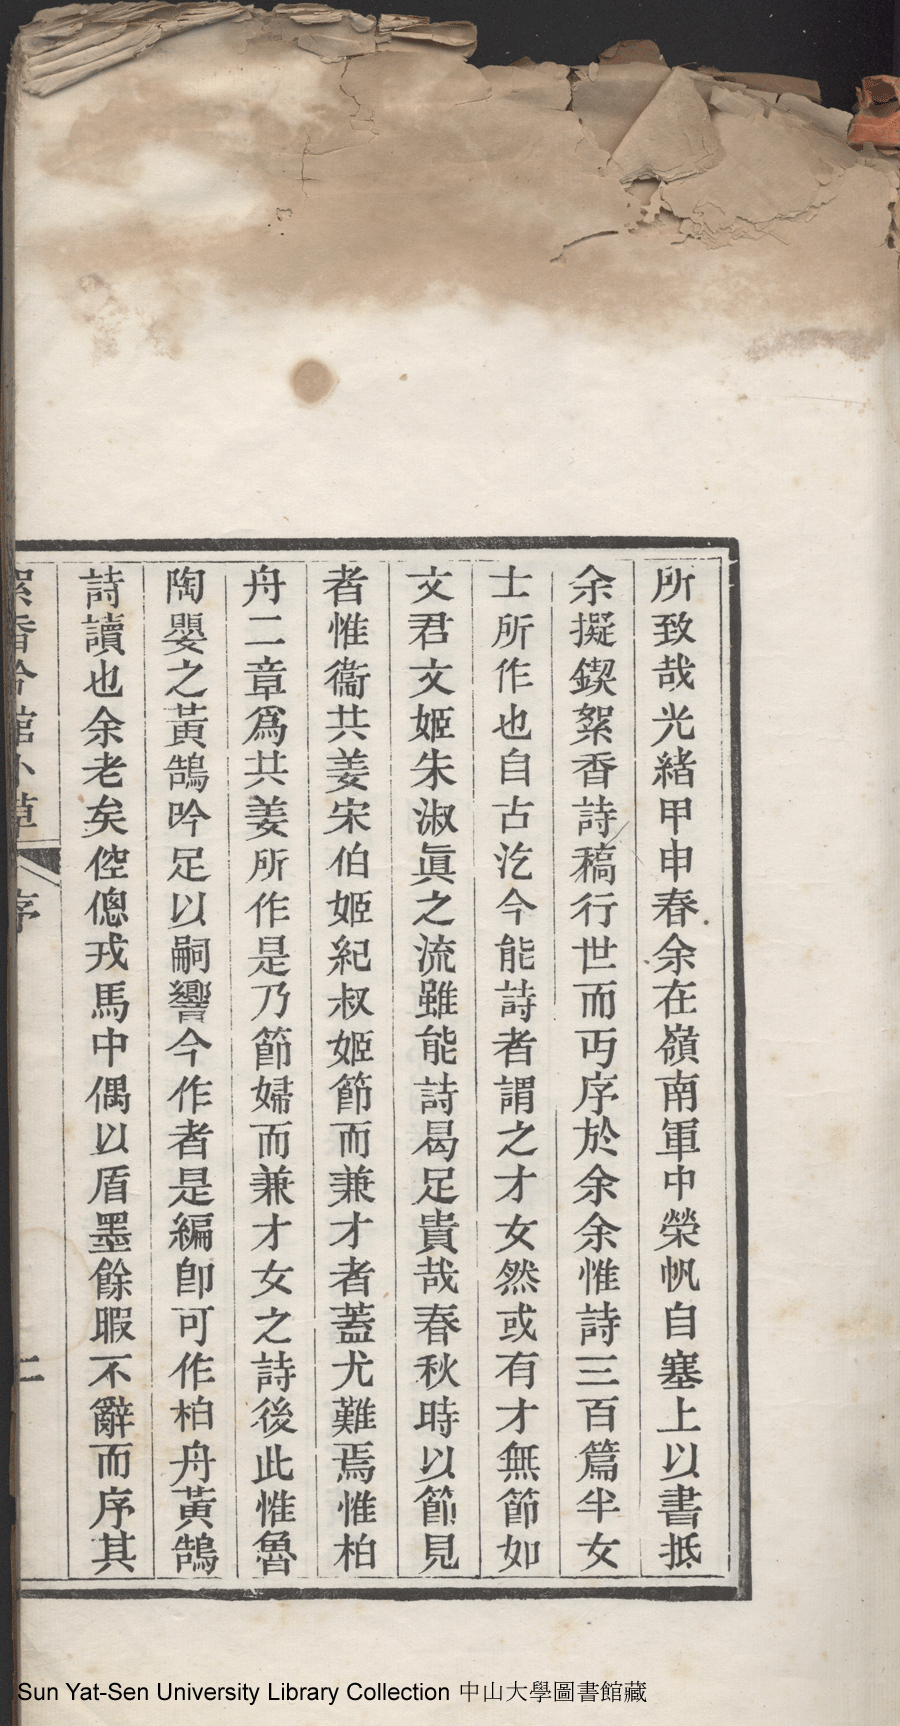 所致哉光緒甲申春余在嶺南軍中榮帆自塞上以書抵
余擬鍥絮香詩稿行世而丐序於余余惟詩三百篇半女
士所作也自古汔今能詩者謂之才女然或有才無節如
文君文姬朱淑眞之流雖能詩曷足貴哉春秋時以節見
者惟衞共姜宋伯姬紀叔姬節而兼才者蓋尤難焉惟柏
舟二章爲共姜所作是乃節婦而兼才女之詩後此惟魯
陶嬰之黃鵠吟足以嗣響今作者是編卽可作柏舟黃鵠
詩讀也余老矣倥傯戎馬中偶以盾墨餘暇不辭而序其
絮香吟館小草 序 二
Sun Yat-Sen University Library Collection 中山大學圖書館藏